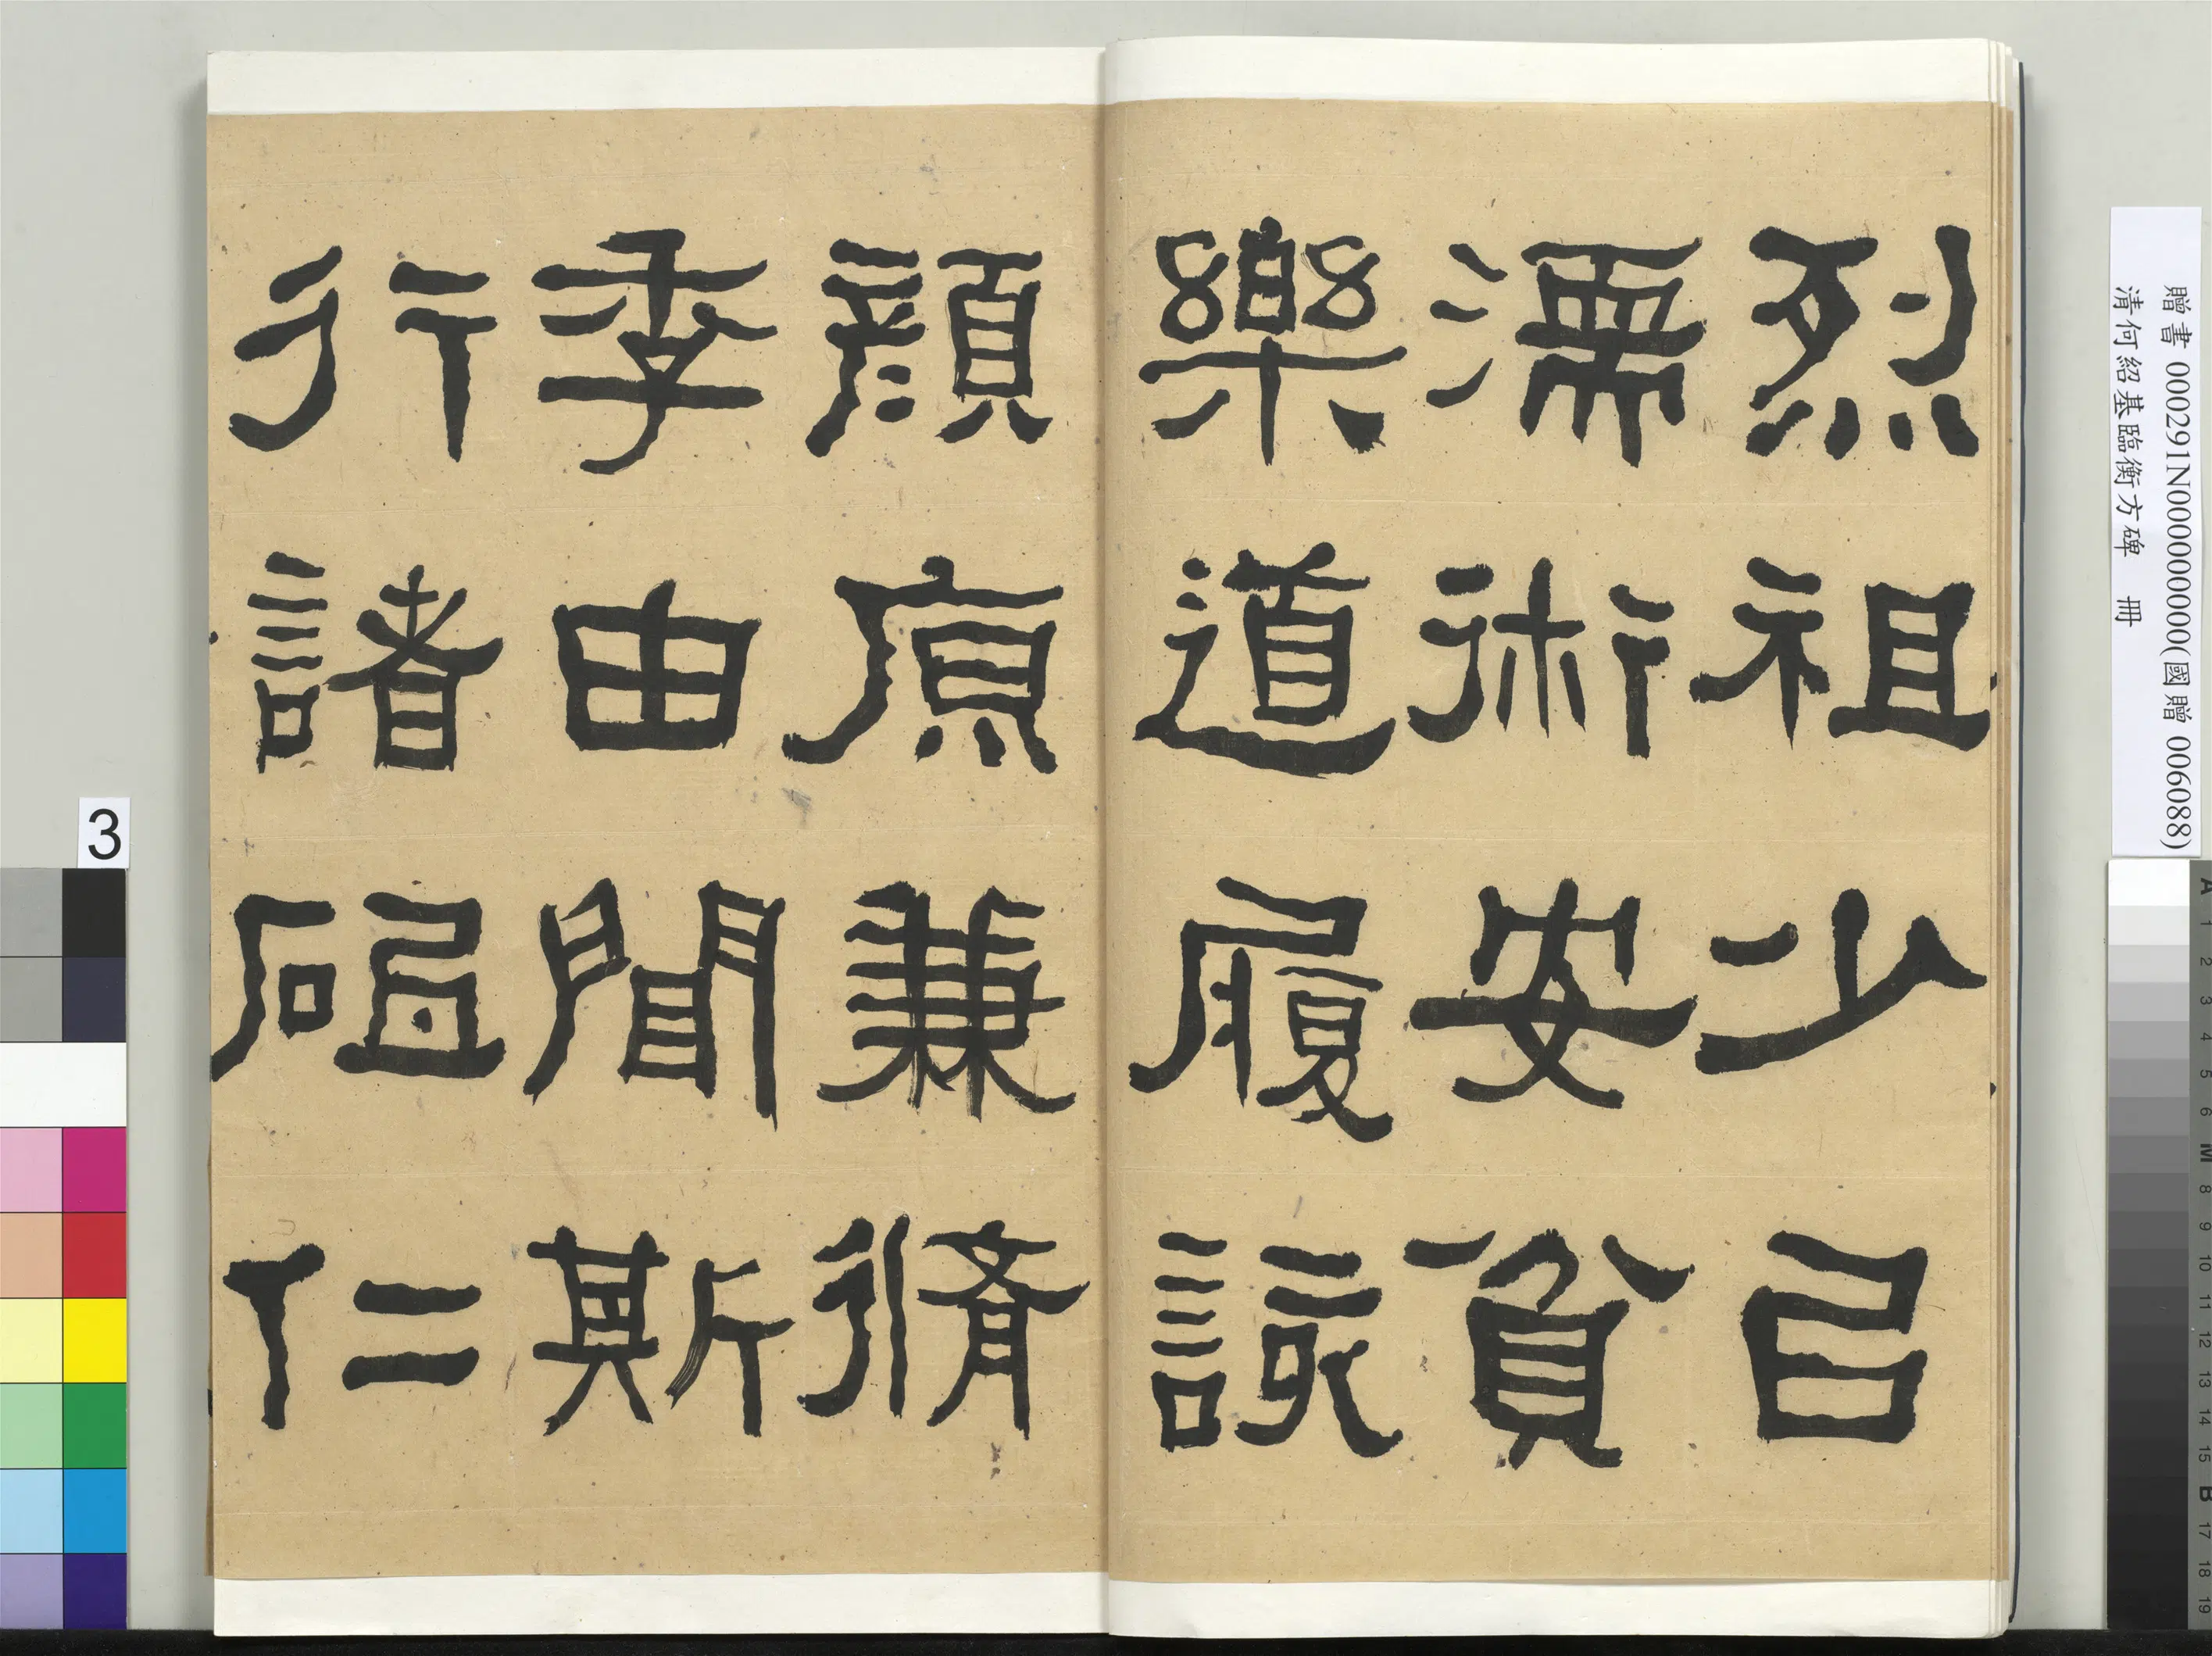 烈祖少已
濡術安貧
樂道履該
顔原兼脩
季由聞斯
行諸砠仁
贈書 000291N000000000(國贈 006088)
清何紹基臨衡方碑 冊
3
A 1 2 3 4 5 6 M 8 9 10 11 12 13 14 15 B 17 18 19